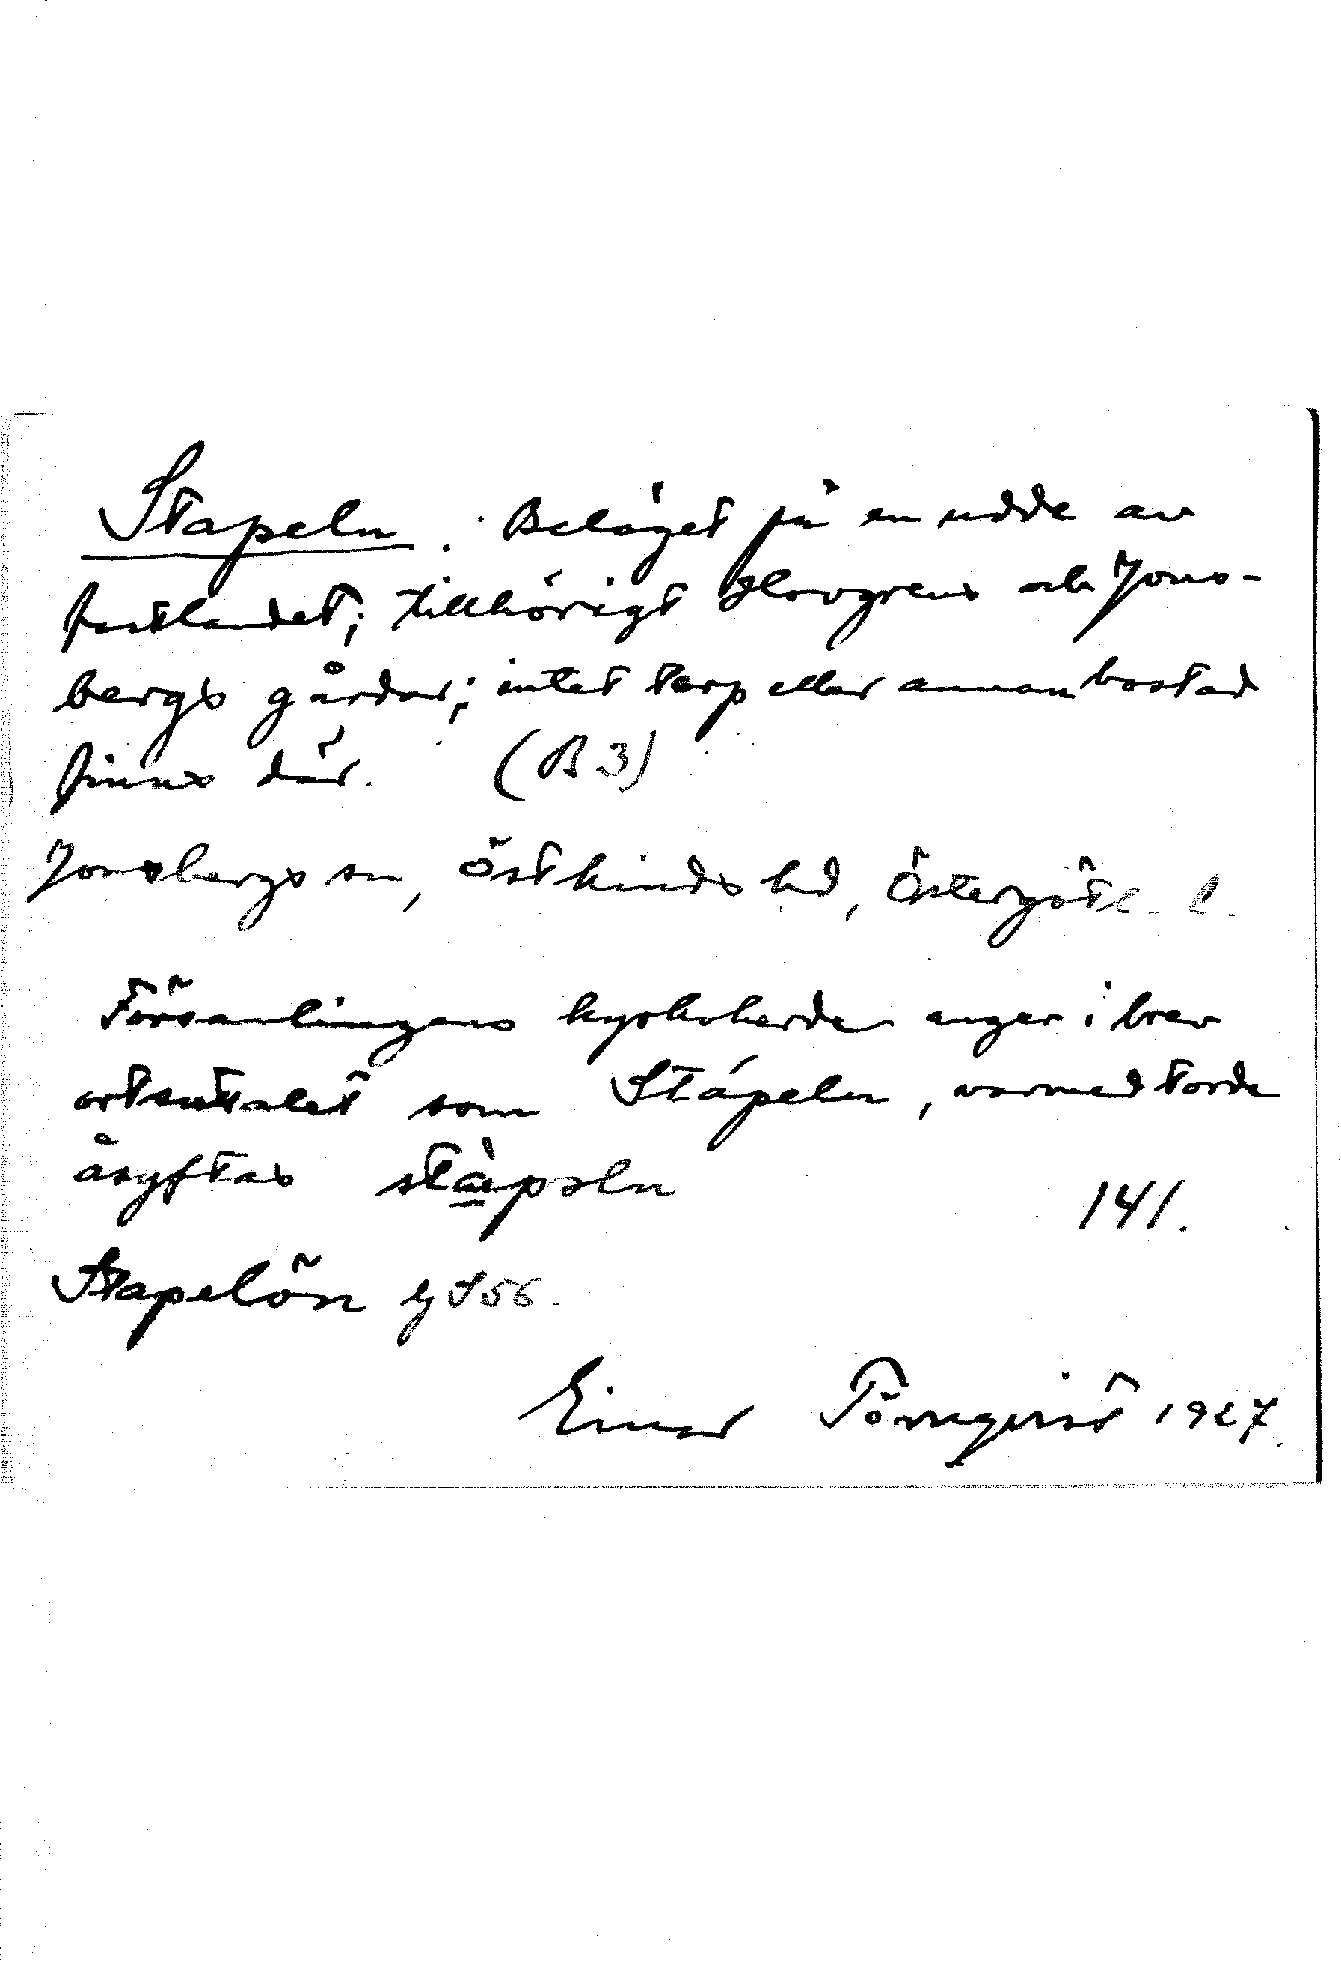 Stapeln. Beläget på en udde av
fastlandet; tillhörigt Hovgrens och Jons-
bergs gårdar; intet torp eller annan bostad
finns där. (B3)
Jonsbergs sn, Östkinds hd, Östergötl. l.
Församlingens kyrkoherde anger i brev
ortsuttalet som Stápeln, varmed torde
åsyftas stàpəln
141.
Stapelön GS56.
Einar Törnqvist 1927.